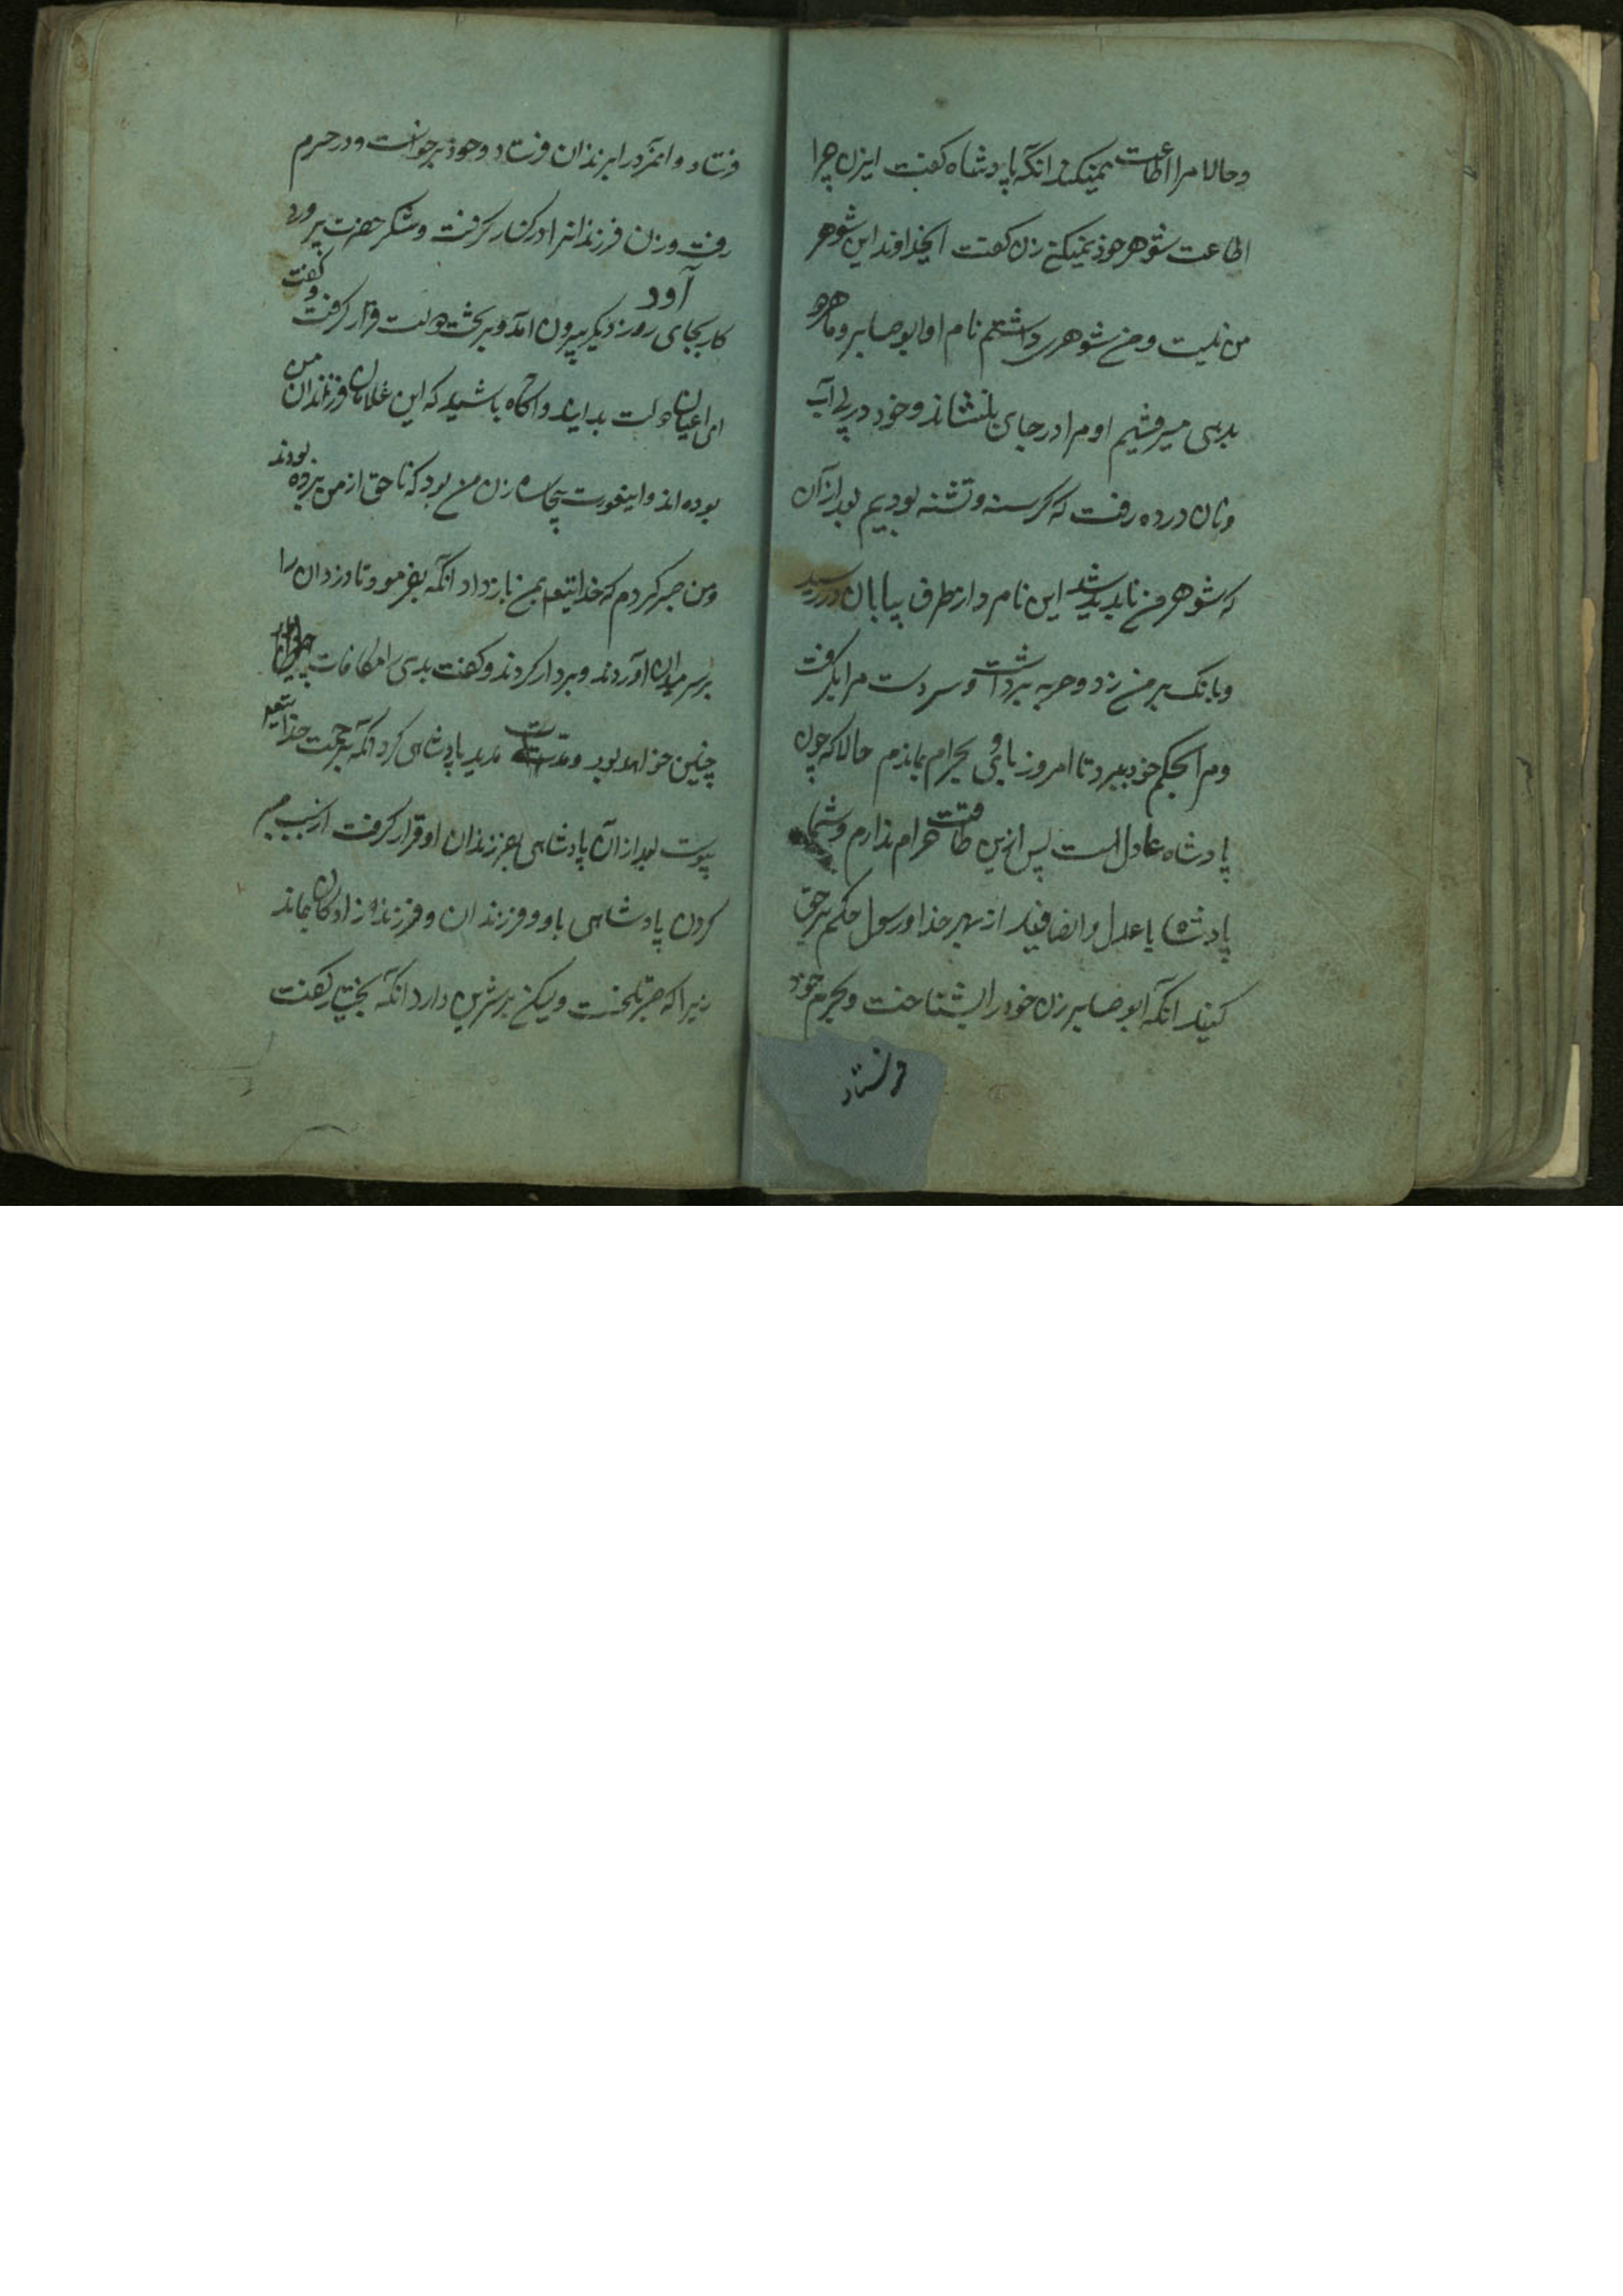 وحالا مرا اطاعت نمیکند انگه پادشاه کفت ایزن چرا
اطاعت شوهر خود نمیکنی زن کفت ایخداوند این شوهر
من نیست ومن شوهری داشتم نام او ابو صابر وما هر دو
بدهی میرفتیم او مرا در جای بنشاند وخود در پی آب
ونان در ده رفت که کرسنه وتشنه بودیم بعد از آن
که شوهر من ناپدید شد این نامرد از طرف بیابان در رسید
وبانک بر من زد وحربه برداشت وسر دست مرا بکرفت
ومرا بحکم خود ببرد تا امروز با وی بحرام بماندم حالا که چون
پادشاه عادل است پس ازین طاقت حرام ندارم وشما
پادشاه با عدل وانصافید از بهر خدا ورسول حکم بر حق
کنید انگه ابو صابر زن خود را بشناخت وبحرم خود
فرستاد
فرستاد وانمرد را بزندان فرستاد وخود برخواست ودر حرم
رفت وزن فرزندانرا در کنار کرفت وشکر حضرت پرورد
آورد
کار بجای روز دیکر بیرون امد وبر تخت دولت قرار کرفت وکفت
ای اعیان دولت بدانید واکاه باشید که این غلامان فرزندان من
بوده اند واینعورت بیچاره زن من بود که ناحق از من برده بودند
ومن صبر کردم که خدایتعالی بمن باز داد انگه بفرمود تا دزدان را
بر سر میدان اوردند وبر دار کردند وکفت بدی را مکافات
چنین خواهد بود ومدت مدید پادشاهی کرد انگه برحمت خدایتعالی
پیوست بعد از آن پادشاهی بفرزندان او قرار کرفت از سبب صبر
کردن پادشاهی باو وفرزندان وفرزند زادکان بماند
زیرا که صبر تلخست ولیکن بر شیرین دارد انگه بختیار کفت